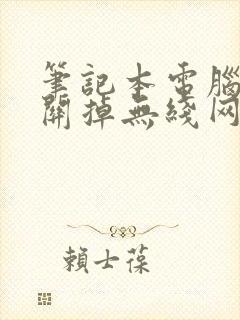 筆記本電腦
關掉無綫网
賴士葆